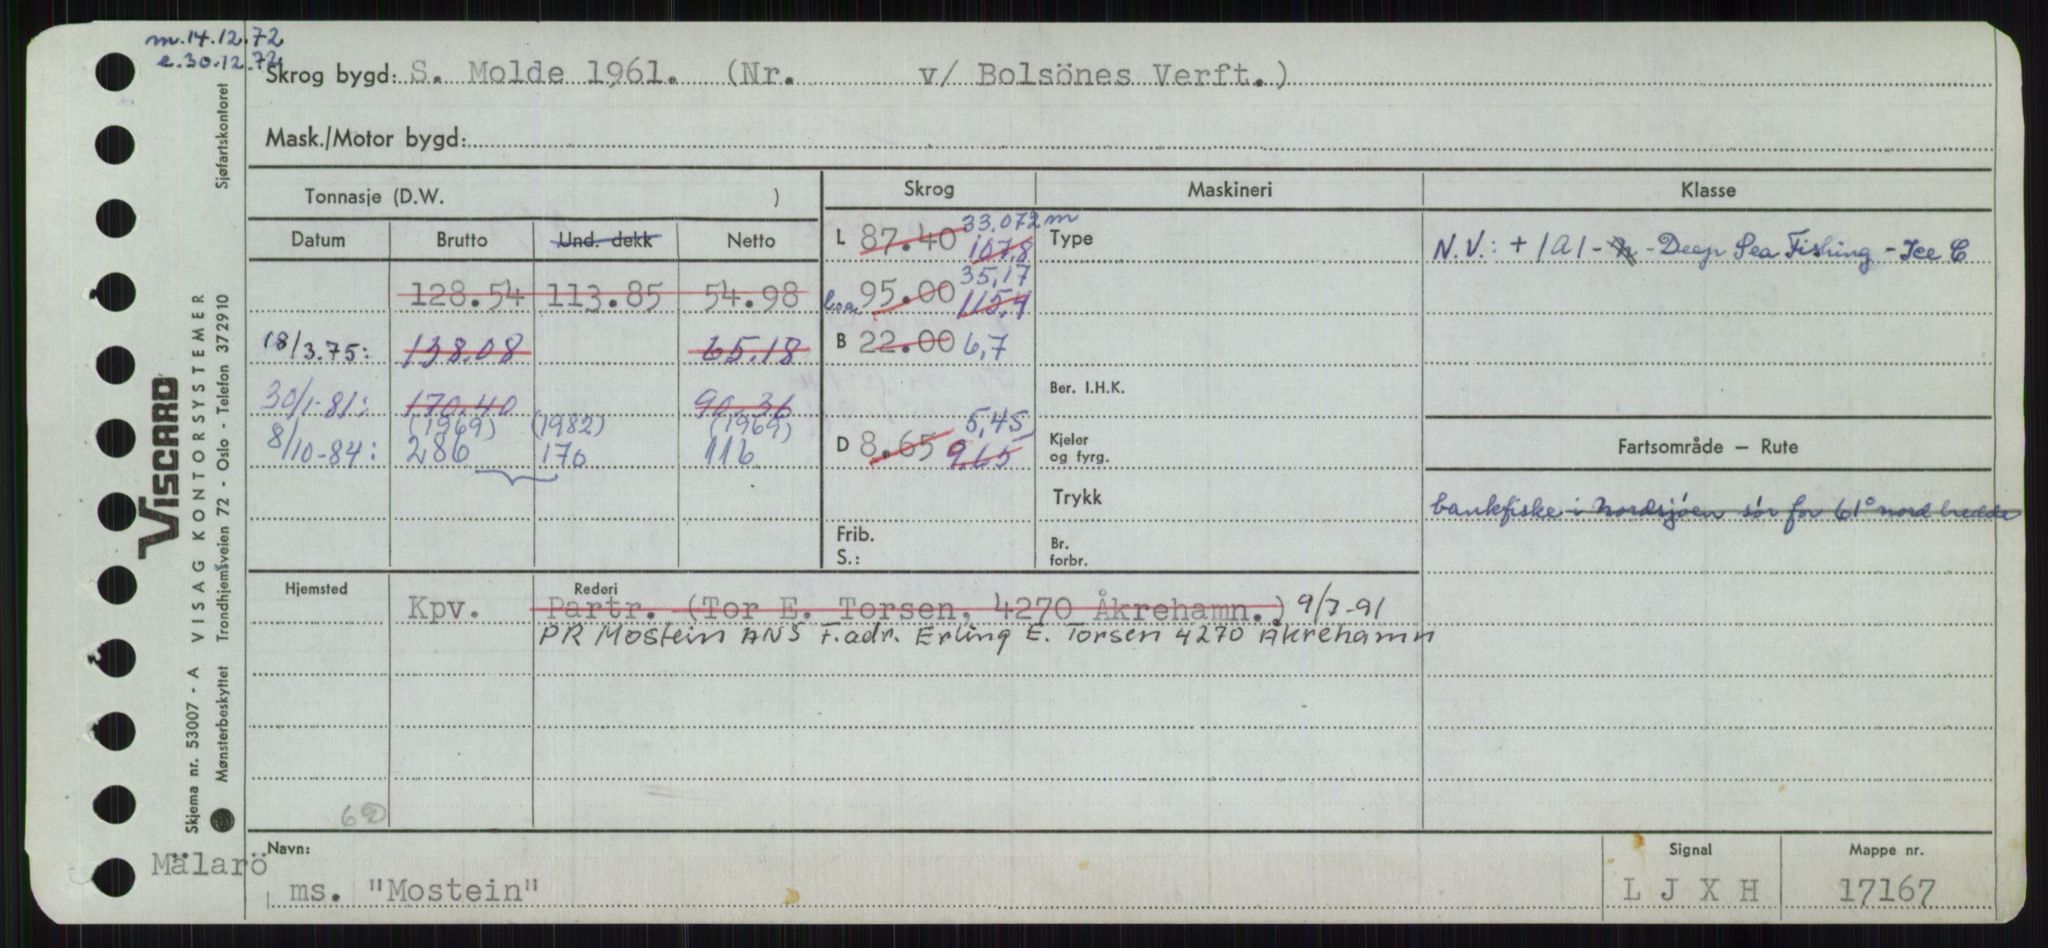 m.14.12.72
e.30.12.72
Skrog bygd: S. Molde 1961. (Nr. v/ Bolsönes Verft.)
Mask./Motor bygd:
Tonnasje (D.W. )
Skrog
Maskineri
Klasse
Datum Brutto Und. dekk Netto
L 87.40 107,8 33.072 m
Type
N.V.: + 1A1 - Deep Sea Fishing - Ice C
128.54 113.85 54.98
Loa 95.00 115,4 35,17
18/3.75: 138.08 65,18
B 22.00 6,7
Ber. I.H.K.
30/1-81: 170.40 90,36
(1969) (1982) (1969)
8/10-84: 286 170 116
D 8.65 9,65 5,45
Kjeler
og fyrg.
Fartsområde — Rute
Trykk
bankfiske i Nordsjøen sør for 61° nord bredde
Frib.
S.:
Br.
forbr.
Hjemsted
Rederi
Kpv. Partr. (Tor E. Torsen, 4270 Åkrehamn.) 9/7-91
PR Mostein ANS F.adr. Erling E. Torsen 4270 Åkrehamn
Navn:
Signal
Mappe nr.
Mälarö
ms. "Mostein"
L J X H
17167
Sjøfartskontoret
VISCARD
VISAG KONTORSYSTEMER
Trondhjemsveien 72 - Oslo - Telefon 372910
Skjema nr. 53007 - A
Mønsterbeskyttet